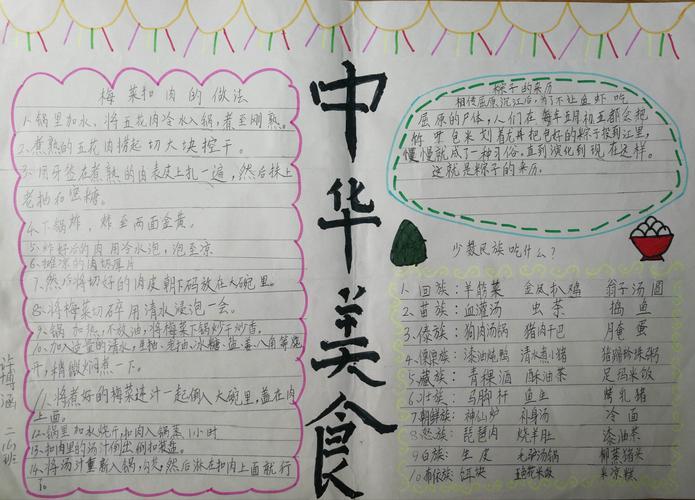 中华美食
梅菜扣肉的做法
1、锅里加水、将五花肉冷水入锅,煮至刚熟。
2、煮熟的五花肉捞起切大块控干。
3、用牙签在煮熟的肉表皮上扎一遍,然后抹上
老抽和黑糖。
4、下锅炸,炸至两面金黄。
5、炸好后的肉用冷水泡,泡至凉
6、摊凉的肉切厚片
7、然后将切好的肉皮朝下码放在大碗里。
8、将梅菜切碎用清水浸泡一会。
9、锅加热,不放油,将梅菜下锅炒干炒香。
10、加入适量的清水,生抽、老抽、冰糖、盐、姜、八角等烧
开,稍微焖煮一下。
11、将煮好的梅菜连汁一起倒入大碗里,盖在肉
上面。
12、锅里加水烧开,扣肉入锅蒸1小时
13、扣肉里的汤汁倒出倒扣装盘。
14、将汤汁重新入锅,勾芡,然后淋在扣肉上面就行
了。
许博涵 二(6)班
粽子的来历
相传屈原沉江后,为了不让鱼虾吃
屈原的尸体,人们在每年五月初五都会把
竹叶包米划着龙舟把包好的粽子投到江里,
慢慢就成了一种习俗。直到演化到现在这样。
这就是粽子的来历。
少数民族吃什么?
1、回族:羊筋菜 金凤扒鸡 翁子汤圆
2、苗族:血灌汤 虫茶 捣鱼
3、傣族:狗肉汤锅 猪肉干巴 腌蛋
4、傈僳族:漆油炖鸡 清水煮小猪 猪蹄珍珠粥
5、藏族:青稞酒 酥油茶 足玛米饭
6、壮族:马脚杆 鱼生 烤乳猪
7、朝鲜族:神仙炉 补身汤 冷面
8、怒族:琵琶肉 烧羊肚 漆油茶
9、白族:生皮 毛驴汤锅 猪米
10、布依族:饵块 花米饭 凉糕